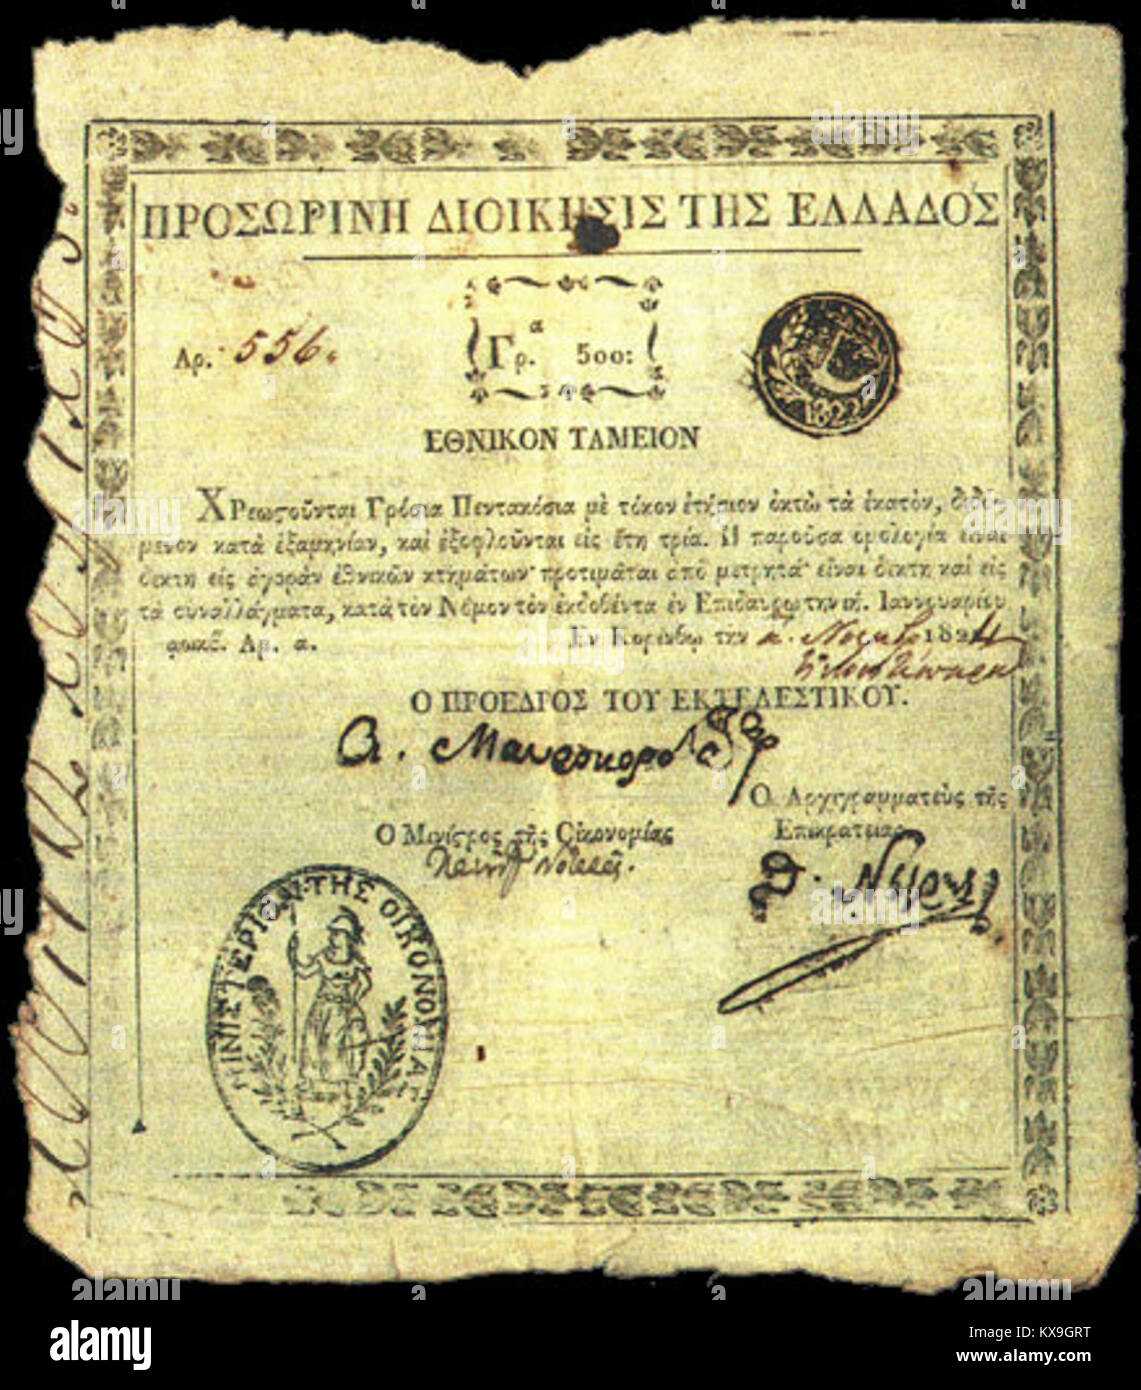 ΠΡΟΣΩΡΙΝΗ ΔΙΟΙΚΗΣΙΣ ΤΗΣ ΕΛΛΑΔΟΣ
Αρ. 556.
Γρ.α 500:
1822
ΕΘΝΙΚΟΝ ΤΑΜΕΙΟΝ
Χρεωστοῦνται Γρόσια Πεντακόσια μὲ τόκον ἐτήσιον ὀκτὼ τὰ ἑκατὸν, διδό-
μενον κατὰ ἑξαμηνίαν, καὶ ἐξοφλοῦνται εἰς ἔτη τρία. Η παροῦσα ομολογία εἶναι
δεκτὴ εἰς ἀγορὰν ἐθνικῶν κτημάτων· προτιμᾶται ἀπὸ μετρητά· εἶναι δεκτὴ καὶ εἰς
τὰ συναλλάγματα, κατὰ τὸν Νόμον τὸν ἐκδοθέντα ἐν Επιδαύρῳ τὴν ιή. Ιαννουαρίου
αωκβ. Αρ. α.
Εν Κορίνθῳ την 182
Ο ΠΡΟΕΔΡΟΣ ΤΟΥ ΕΚΤΕΛΕΣΤΙΚΟΥ.
Α. Μαυροκορδάτος
Ο Αρχιγραμματεὺς τῆς
Επικρατείας
Ο Μινίστρος τῆς Οἰκονομίας
Θ. Νέγρης
ΜΙΝΙΣΤΕΡΙΟΝ ΤΗΣ ΟΙΚΟΝΟΜΙΑΣ
alamy stock photo
KX9GRT
www.alamy.com